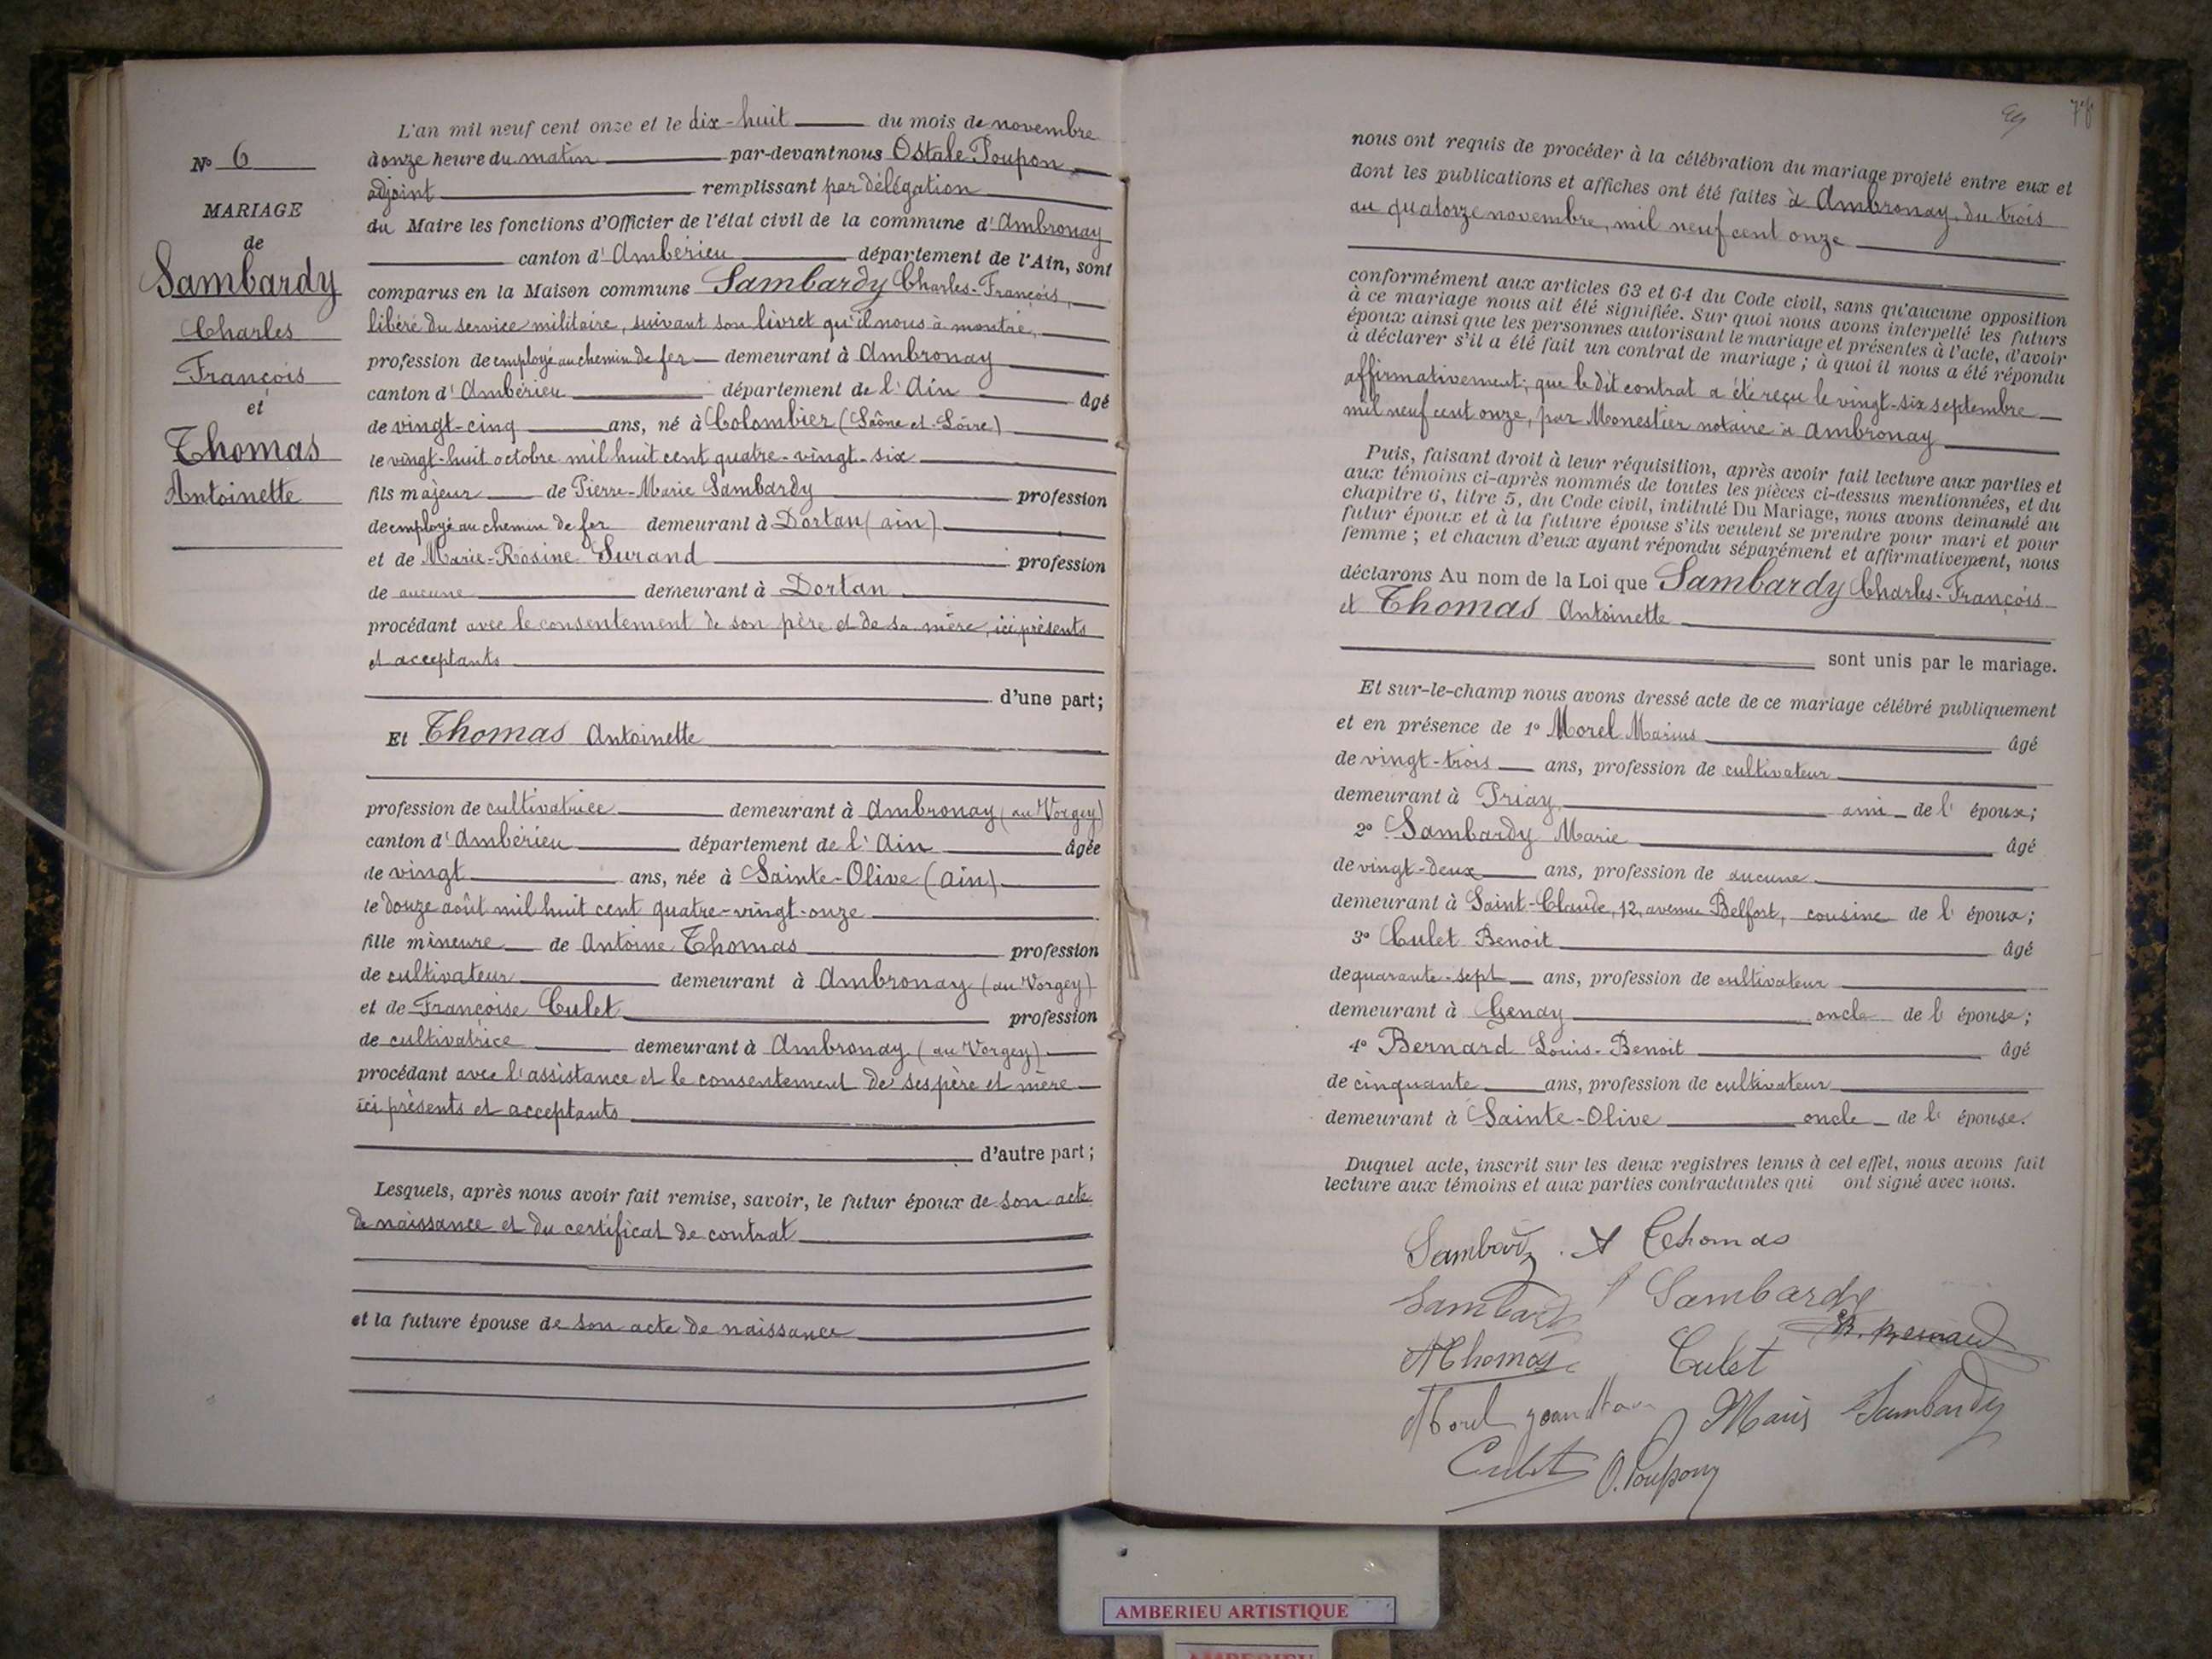 N° 6
MARIAGE
de
Sambardy
Charles
François
et
Thomas
Antoinette
L'an mil neuf cent onze et le dix-huit du mois de novembre
à onze heure du matin par-devant nous Ostale Poupon
adjoint remplissant par délégation
du Maire les fonctions d'Officier de l'état civil de la commune d'Ambronay
canton d'Ambérieu département de l'Ain, sont
comparus en la Maison commune Sambardy Charles-François,
libéré du service militaire, suivant son livret qu'il nous à montré,
profession de employé au chemin de fer demeurant à Ambronay
canton d'Ambérieu département de l'Ain âgé
de vingt-cinq ans, né à Colombier (Saône et Loire)
le vingt-huit octobre mil huit cent quatre-vingt-six
fils majeur de Pierre-Marie Sambardy profession
de employé au chemin de fer demeurant à Dortan (ain)
et de Marie-Rosine Surand profession
de aucune demeurant à Dortan
procédant avec le consentement de son père et de sa mère, ici présents
et acceptants
d'une part;
Et Thomas Antoinette
profession de cultivatrice demeurant à Ambronay (au Vorgey)
canton d'Ambérieu département de l'Ain âgée
de vingt ans, née à Sainte-Olive (ain)
le douze août mil huit cent quatre-vingt-onze
fille mineure de Antoine Thomas profession
de cultivateur demeurant à Ambronay (au Vorgey)
et de Françoise Culet profession
de cultivatrice demeurant à Ambronay (au Vorgey)
procédant avec l'assistance et le consentement de ses père et mère
ici présents et acceptants
d'autre part;
Lesquels, après nous avoir fait remise, savoir, le futur époux de son acte
de naissance et du certificat de contrat
et la future épouse de son acte de naissance
nous ont requis de procéder à la célébration du mariage projeté entre eux et
dont les publications et affiches ont été faites à Ambronay, du trois
au quatorze novembre, mil neuf cent onze
conformément aux articles 63 et 64 du Code civil, sans qu'aucune opposition
à ce mariage nous ait été signifiée. Sur quoi nous avons interpellé les futurs
époux ainsi que les personnes autorisant le mariage et présentes à l'acte, d'avoir
à déclarer s'il a été fait un contrat de mariage ; à quoi il nous a été répondu
affirmativement; que le dit contrat a été reçu le vingt-six septembre
mil neuf cent onze, par Monestier notaire à Ambronay
Puis, faisant droit à leur réquisition, après avoir fait lecture aux parties et
aux témoins ci-après nommés de toutes les pièces ci-dessus mentionnées, et du
chapitre 6, titre 5, du Code civil, intitulé Du Mariage, nous avons demandé au
futur époux et à la future épouse s'ils veulent se prendre pour mari et pour
femme ; et chacun d'eux ayant répondu séparément et affirmativement, nous
déclarons Au nom de la Loi que Sambardy Charles-François
et Thomas Antoinette
sont unis par le mariage.
Et sur-le-champ nous avons dressé acte de ce mariage célébré publiquement
et en présence de 1° Morel Marius âgé
de vingt-trois ans, profession de cultivateur
demeurant à Priay, ami de l'époux;
2° Sambardy Marie âgé
de vingt-deux ans, profession de aucune
demeurant à Saint-Claude, 12, avenue Belfort, cousine de l'époux;
3° Culet Benoit âgé
de quarante-sept ans, profession de cultivateur
demeurant à Genay oncle de l'épouse;
4° Bernard Louis-Benoit âgé
de cinquante ans, profession de cultivateur
demeurant à Sainte-Olive oncle de l'épouse.
Duquel acte, inscrit sur les deux registres tenus à cet effet, nous avons fait
lecture aux témoins et aux parties contractantes qui ont signé avec nous.
A Thomas
Sambardy
AThomas Culet
Morel Marie Sambardy
Culet O. Poupon
AMBERIEU ARTISTIQUE
AMBERIEU